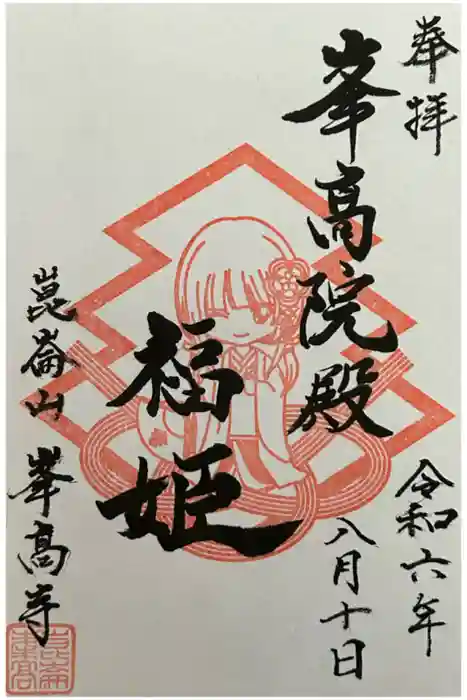 奉拝
令和六年
八月十日
峯高院殿
福姫
崑崙山 峯高寺